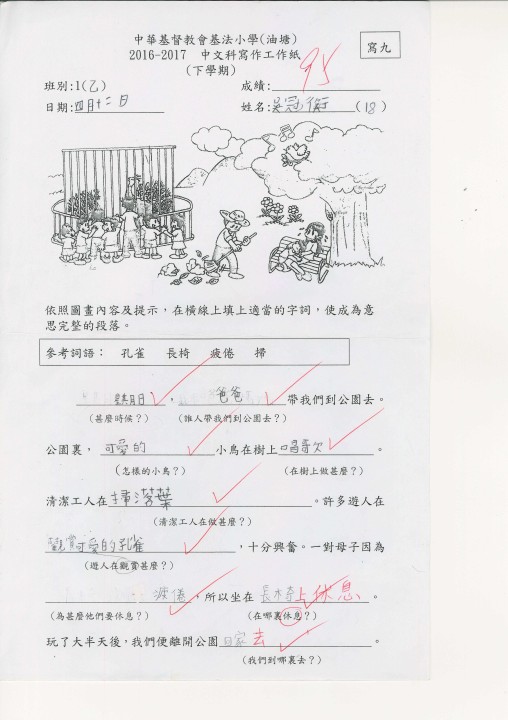 中華基督教會基法小學(油塘)
寫九
2016-2017 中文科寫作工作紙
(下學期)
95
班別:1(乙) 成績:
日期:四月十二日 姓名:吳冠衛(18)
依照圖畫內容及提示，在橫線上填上適當的字詞，使成為意
思完整的段落。
參考詞語： 孔雀 長椅 疲倦 掃
星期日，爸爸帶我們到公園去。
(甚麼時候？) (誰人帶我們到公園去？)
公園裏，可愛的小鳥在樹上唱歌。
(怎樣的小鳥？) (在樹上做甚麼？)
清潔工人在掃落葉。許多遊人在
(清潔工人在做甚麼？)
觀賞可愛的孔雀，十分興奮。一對母子因為
(遊人在觀賞甚麼？)
疲倦，所以坐在長椅上休息。
(為甚麼他們要休息？) (在哪裏休息？)
玩了大半天後，我們便離開公園回家去。
(我們到哪裏去？)